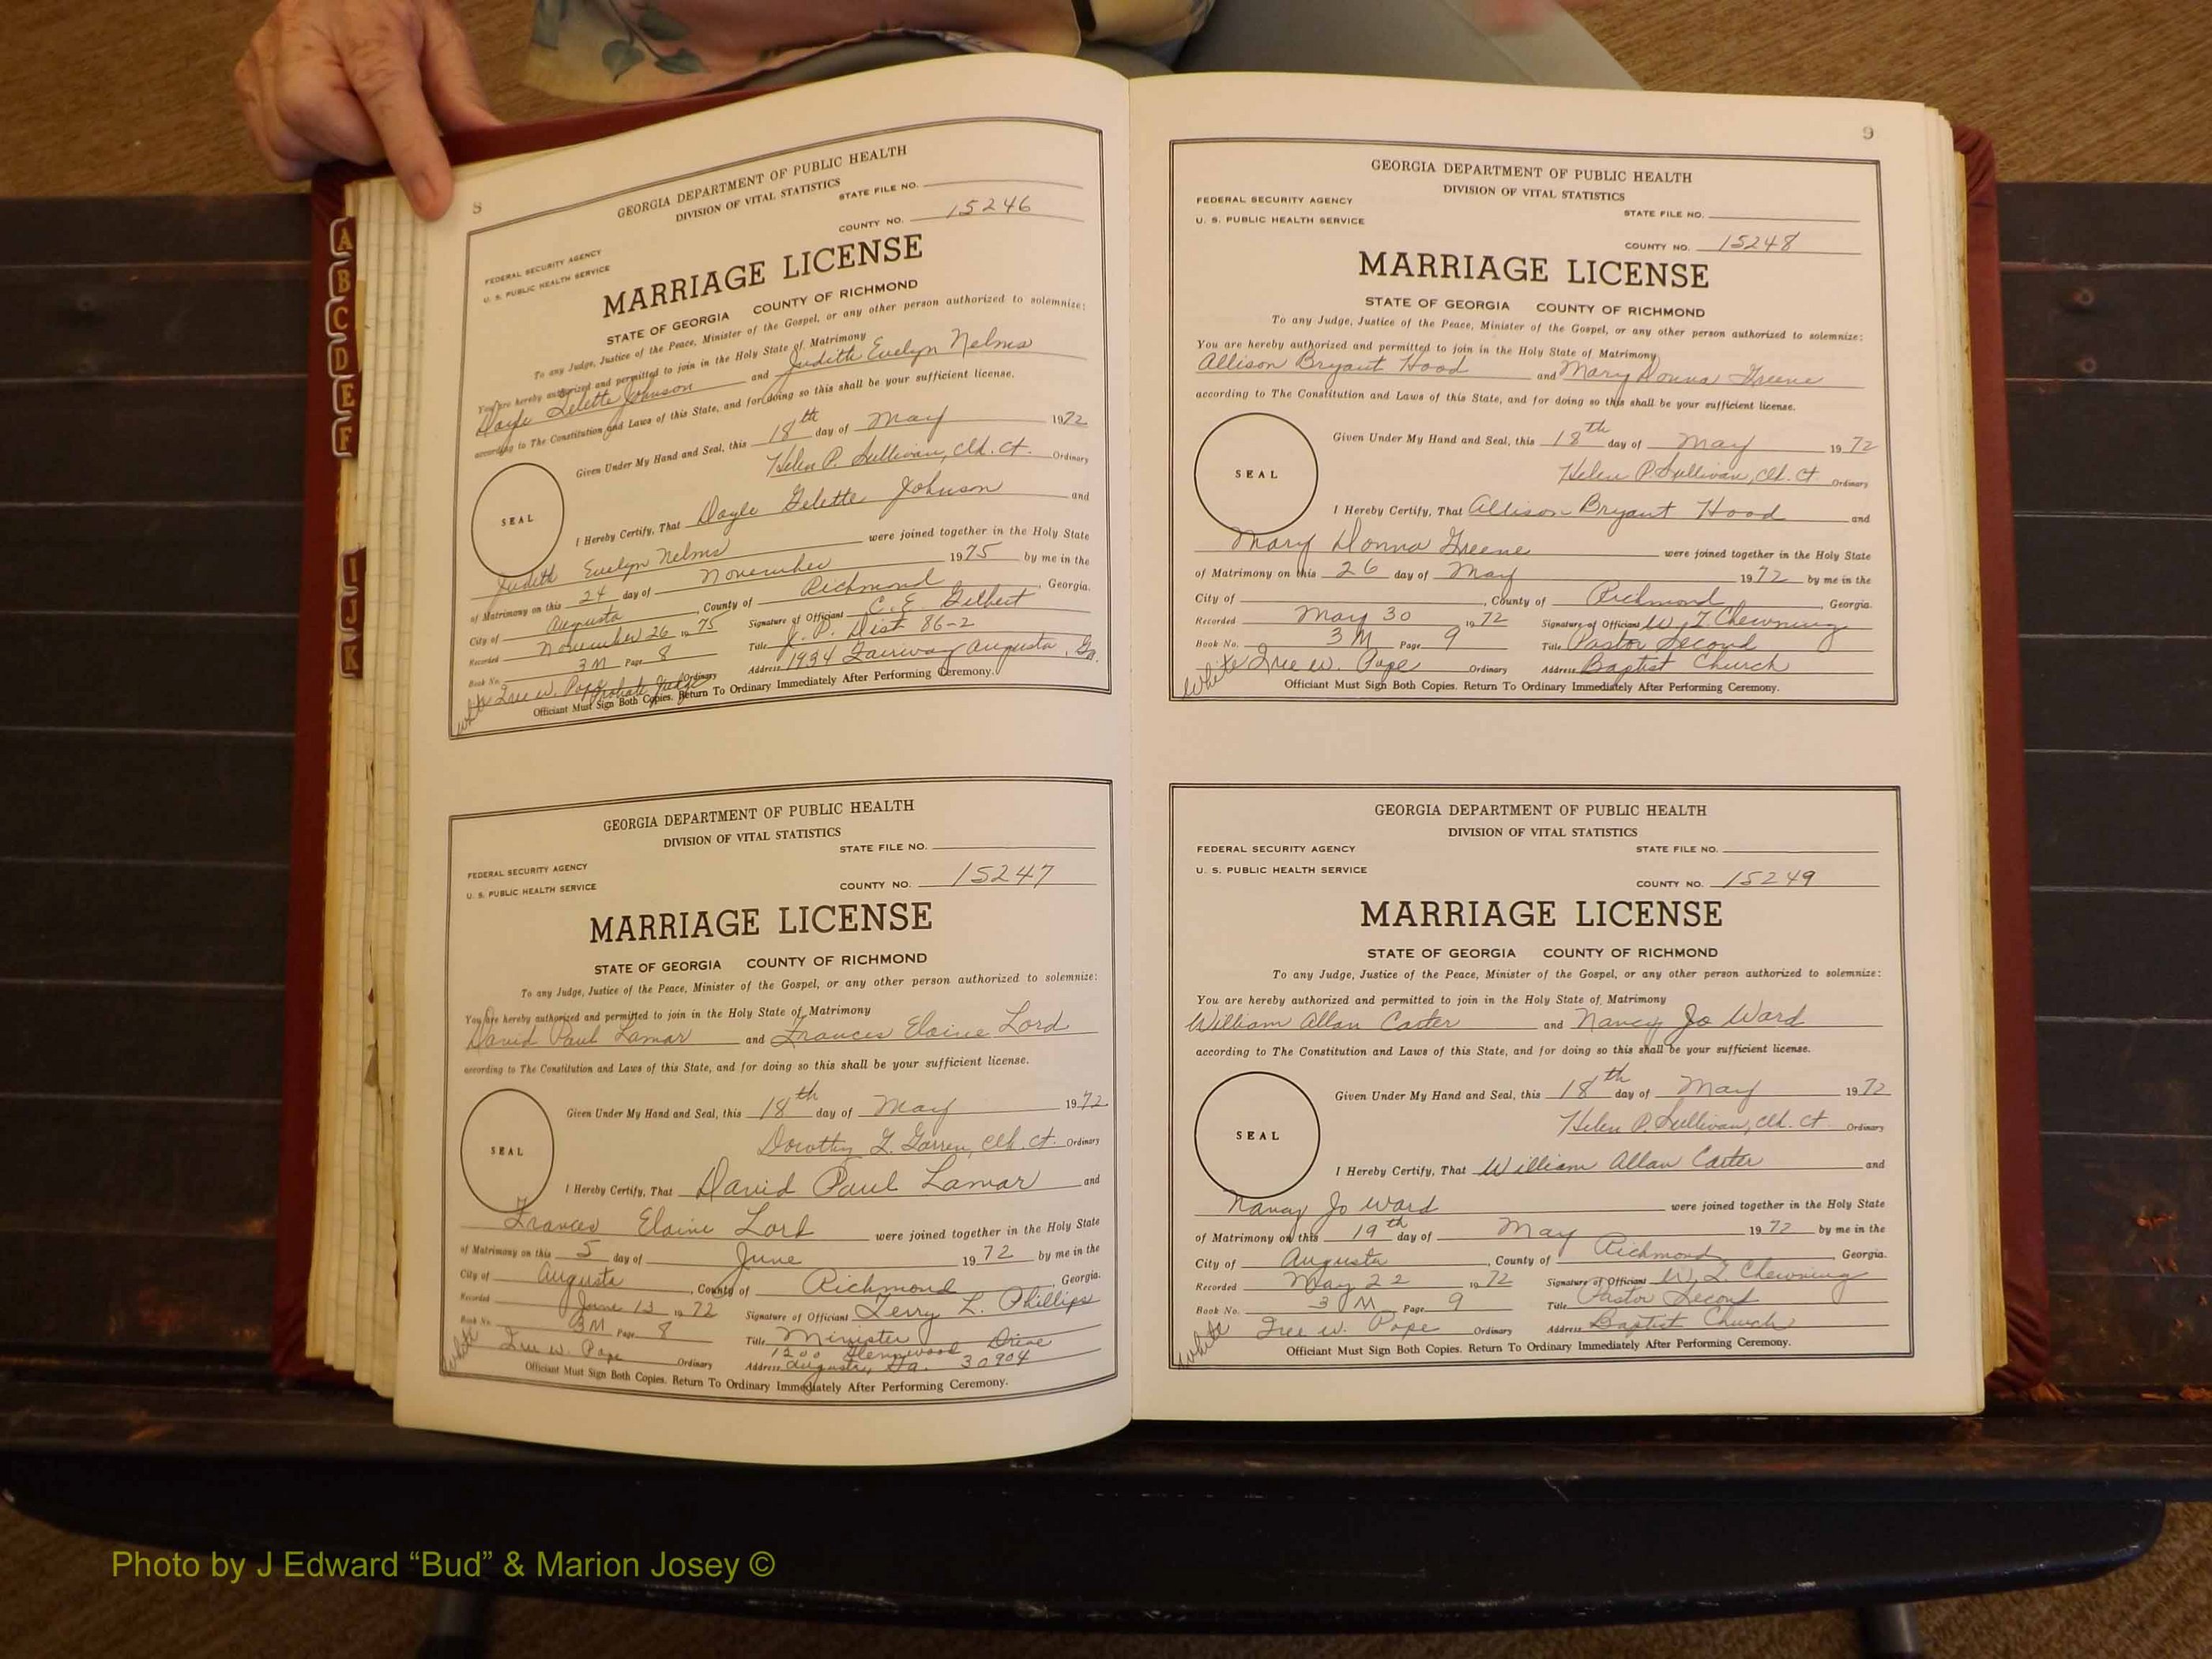 A
B
C
D
E
F
I
J
K
8
GEORGIA DEPARTMENT OF PUBLIC HEALTH
DIVISION OF VITAL STATISTICS
STATE FILE NO.
COUNTY NO. 15246
FEDERAL SECURITY AGENCY
U. S. PUBLIC HEALTH SERVICE
MARRIAGE LICENSE
STATE OF GEORGIA COUNTY OF RICHMOND
To any Judge, Justice of the Peace, Minister of the Gospel, or any other person authorized to solemnize:
You are hereby authorized and permitted to join in the Holy State of Matrimony
Doyle Gelette Johnson and Judith Evelyn Nelms
according to The Constitution and Laws of this State, and for doing so this shall be your sufficient license.
Given Under My Hand and Seal, this 18th day of May 1972
Helen P. Sullivan, Clk. Ct. Ordinary
SEAL
I Hereby Certify, That Doyle Gelette Johnson and
Judith Evelyn Nelms were joined together in the Holy State
of Matrimony on this 24 day of November 1975 by me in the
City of Augusta, County of Richmond, Georgia.
Recorded November 26 1975 Signature of Officiant C. E. Gilbert
Book No. 3M Page 8 Title J. P. Dist 86-2
white Tree W. Pope Probate Judge Ordinary Address 1934 Fairway Augusta, Ga.
Officiant Must Sign Both Copies. Return To Ordinary Immediately After Performing Ceremony.
GEORGIA DEPARTMENT OF PUBLIC HEALTH
DIVISION OF VITAL STATISTICS
STATE FILE NO.
FEDERAL SECURITY AGENCY
U. S. PUBLIC HEALTH SERVICE
COUNTY NO. 15247
MARRIAGE LICENSE
STATE OF GEORGIA COUNTY OF RICHMOND
To any Judge, Justice of the Peace, Minister of the Gospel, or any other person authorized to solemnize:
You are hereby authorized and permitted to join in the Holy State of Matrimony
David Paul Lamar and Frances Elaine Lord
according to The Constitution and Laws of this State, and for doing so this shall be your sufficient license.
Given Under My Hand and Seal, this 18th day of May 1972
Dorothy Clk. Ct. Ordinary
SEAL
I Hereby Certify, That David Paul Lamar and
Frances Elaine Lord were joined together in the Holy State
of Matrimony on this 5 day of June 1972 by me in the
City of Augusta, County of Richmond, Georgia.
Recorded June 13 1972 Signature of Officiant Terry L. Phillips
Book No. 3M Page 8 Title Minister
white Tree W. Pope Ordinary Address 1200 Glennwood Drive
Augusta, Ga. 30904
Officiant Must Sign Both Copies. Return To Ordinary Immediately After Performing Ceremony.
9
GEORGIA DEPARTMENT OF PUBLIC HEALTH
DIVISION OF VITAL STATISTICS
FEDERAL SECURITY AGENCY
STATE FILE NO.
U. S. PUBLIC HEALTH SERVICE
COUNTY NO. 15248
MARRIAGE LICENSE
STATE OF GEORGIA COUNTY OF RICHMOND
To any Judge, Justice of the Peace, Minister of the Gospel, or any other person authorized to solemnize:
You are hereby authorized and permitted to join in the Holy State of Matrimony
Allison Bryant Hood and Mary Donna Greene
according to The Constitution and Laws of this State, and for doing so this shall be your sufficient license.
Given Under My Hand and Seal, this 18th day of May 1972
Helen P. Sullivan, Clk. Ct. Ordinary
SEAL
I Hereby Certify, That Allison Bryant Hood and
Mary Donna Greene were joined together in the Holy State
of Matrimony on this 26 day of May 1972 by me in the
City of , County of Richmond, Georgia.
Recorded May 30 1972 Signature of Officiant W. L. Chewning
Book No. 3M Page 9 Title Pastor Second
white Tree W. Pope Ordinary Address Baptist Church
Officiant Must Sign Both Copies. Return To Ordinary Immediately After Performing Ceremony.
GEORGIA DEPARTMENT OF PUBLIC HEALTH
DIVISION OF VITAL STATISTICS
FEDERAL SECURITY AGENCY
STATE FILE NO.
U. S. PUBLIC HEALTH SERVICE
COUNTY NO. 15249
MARRIAGE LICENSE
STATE OF GEORGIA COUNTY OF RICHMOND
To any Judge, Justice of the Peace, Minister of the Gospel, or any other person authorized to solemnize:
You are hereby authorized and permitted to join in the Holy State of Matrimony
William Allan Carter and Nancy Jo Ward
according to The Constitution and Laws of this State, and for doing so this shall be your sufficient license.
Given Under My Hand and Seal, this 18th day of May 1972
Helen P. Sullivan, Clk. Ct. Ordinary
SEAL
I Hereby Certify, That William Allan Carter and
Nancy Jo Ward were joined together in the Holy State
of Matrimony on this 19th day of May 1972 by me in the
City of Augusta, County of Richmond, Georgia.
Recorded May 22 1972 Signature of Officiant W. L. Chewning
Book No. 3M Page 9 Title Pastor Second
white Tree W. Pope Ordinary Address Baptist Church
Officiant Must Sign Both Copies. Return To Ordinary Immediately After Performing Ceremony.
Photo by J Edward “Bud” & Marion Josey ©